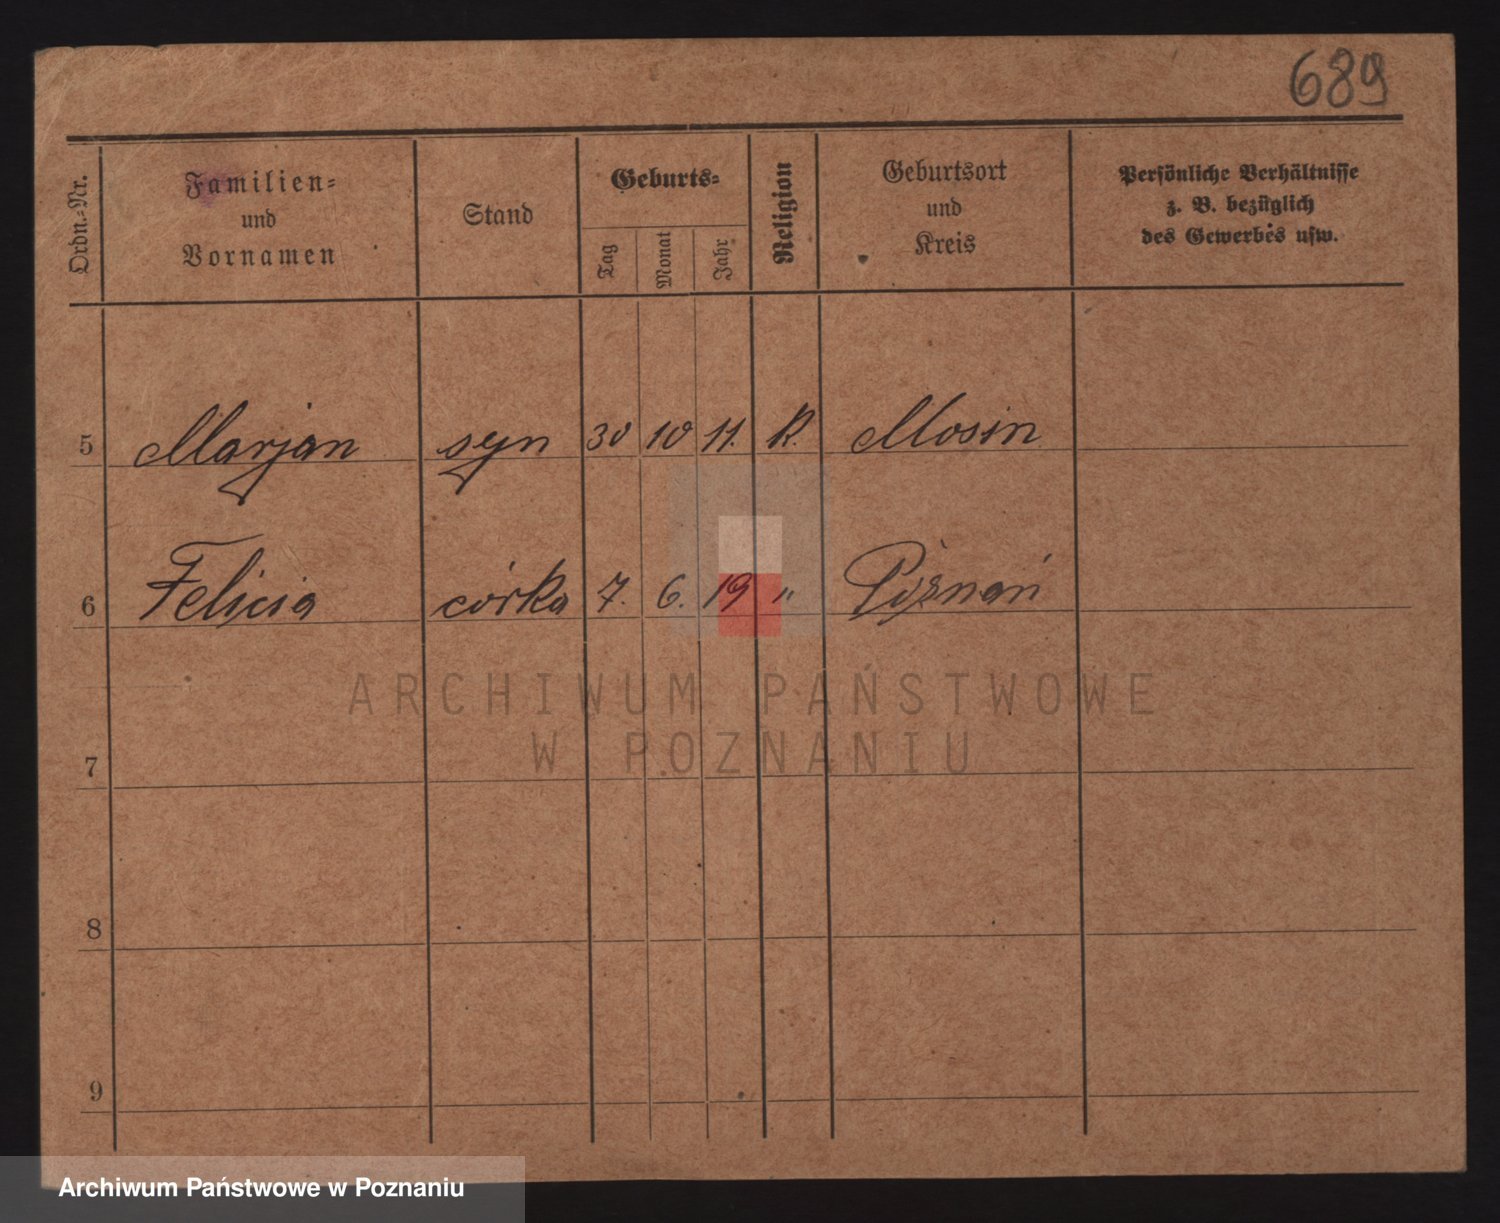 689
Ordn.-Nr.
Familien-
und
Vornamen
Stand
Geburts-
Tag
Monat
Jahr
Religion
Geburtsort
und
Kreis
Persönliche Verhältnisse
z. B. bezüglich
des Gewerbes usw.
5 Marjan syn 30 10 11. K. Mosin
6 Felicia córka 7. 6. 19 " Poznań
7
8
9
ARCHIWUM PAŃSTWOWE
W POZNANIU
Archiwum Państwowe w Poznaniu